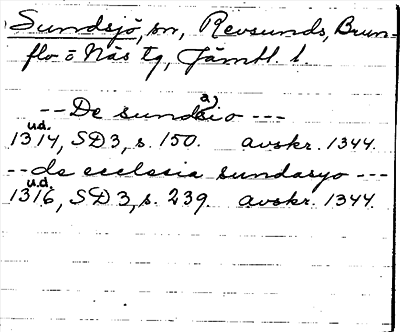 Sundsjö, sn, Revsunds, Brun-
flo o Näs tg, Jämtl. l.
--De sundasio---
1314, u.d. SD3, s. 150. avskr. 1344.
--de ecclesia sundasyo---
1316, u.d. SD3, s. 239. avskr. 1344.